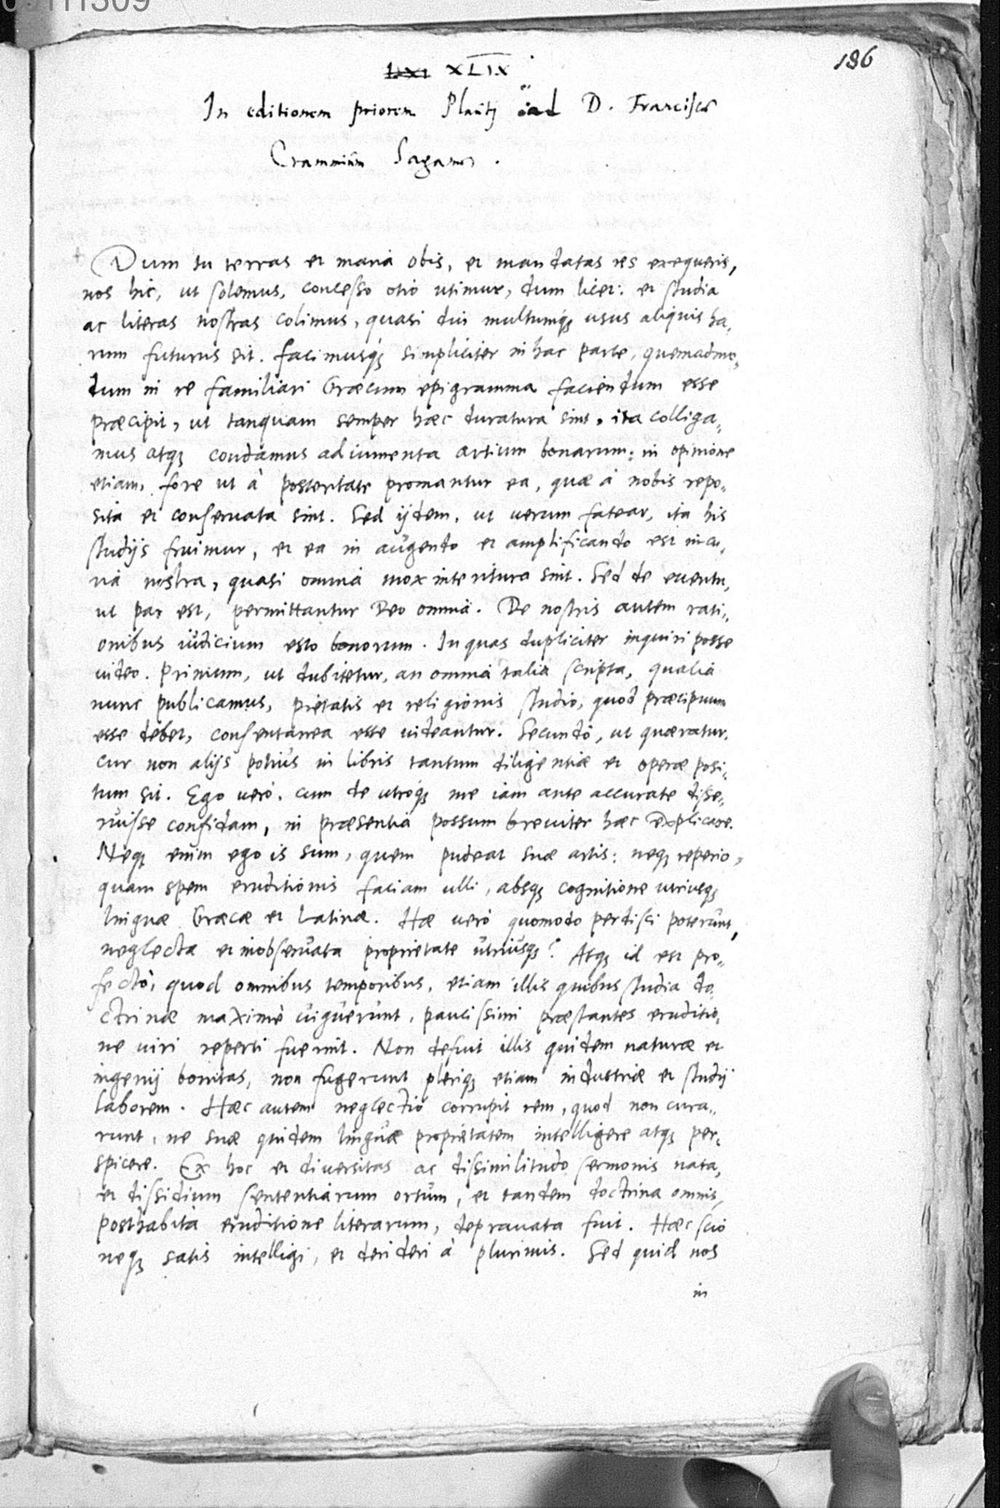 186
XLIX
In editionem priorem Plauti ad D. Francisc
Crammium Saganum.
Dum tu terras et maria obis, et mandatas res exequeris,
nos hic, ut solemus, concesso otio utimur, dum licet: et studia
ac literas nostras colimus, quasi diu multumq; usus aliquis ha,
rum futurus sit. Facimusq; simpliciter in hac parte, quemadmo,
dum in re familiari Græcum epigramma faciendum esse
præcipit, ut tanquam semper hæc duratura sint, ita colliga,
mus atq; condamus adiumenta artium bonarum: in opinione
etiam, fore ut à posteritate promantur ea, quæ à nobis repo,
sita et conservata sint. Sed ijdem, ut verum fatear, ita his
studijs fruimur, et ea in augendo et amplificando est in cu,
ra nostra, quasi omnia mox interitura sint. Sed de eventu,
ut par est, permittantur Deo omnia. De nostris autem rati,
onibus iudicium esto bonorum. In quas dupliciter inquiri posse
video. Primum, ut dubitetur, an omnia talia scripta, qualia
nunc publicamus, pietatis et religionis studio, quod præcipuum
esse debet, consentanea esse videantur. Secundò, ut quæratur,
cur non alijs potius in libris tantum diligentiæ et operæ posi,
tum sit. Ego verò, cum de utroq; me iam ante accurate dise,
ruisse confidam, in præsentia possum breviter hæc explicare.
Neq; enim ego is sum, quem pudeat suæ artis: neq; reperio,
quam spem eruditionis faciam ulli, absq; cognitione utriusq;
linguæ Græcæ et Latinæ. Hæ verò quomodo perdisci poterunt,
neglecta et inobservata proprietate utriusq;? Atq; id est pro,
fectò, quod omnibus temporibus, etiam illis quibus studia do,
ctrinæ maximè viguerunt, paucissimi præstantes eruditio,
ne viri reperti fuerint. Non defuit illis quidem naturæ et
ingenij bonitas, non fugerunt pleriq; etiam industriæ et studij
laborem. Hæc autem neglectio corrupit rem, quod non cura,
runt, ne suæ quidem linguæ proprietatem intelligere atq; per,
spicere. Ex hoc et diversitas ac dissimilitudo sermonis nata,
et dissidium sententiarum ortum, et tandem doctrina omnis,
posthabita eruditione literarum, depravata fuit. Hæc scio
neq; satis intelligi, et derideri à plurimis. Sed quid nos
in